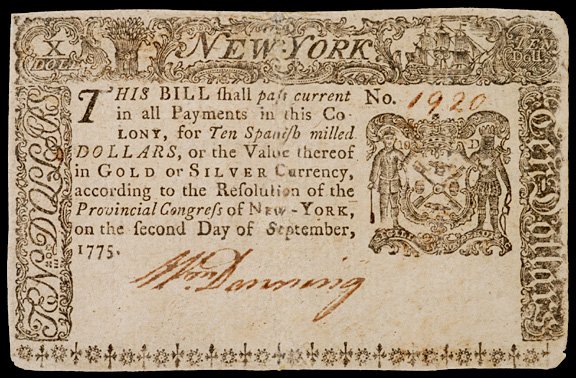 X
DOLL
NEW-YORK
TEN
Doll
THIS BILL ſhall paſs current
in all Payments in this Co-
LONY, for Ten Spaniſh milled
DOLLARS, or the Value thereof
in GOLD or SILVER Currency,
according to the Reſolution of the
Provincial Congreſs of NEW-YORK,
on the ſecond Day of September,
1775.
No. 1920
Wm Denning
TEN DOLLARS
Ten Dollars